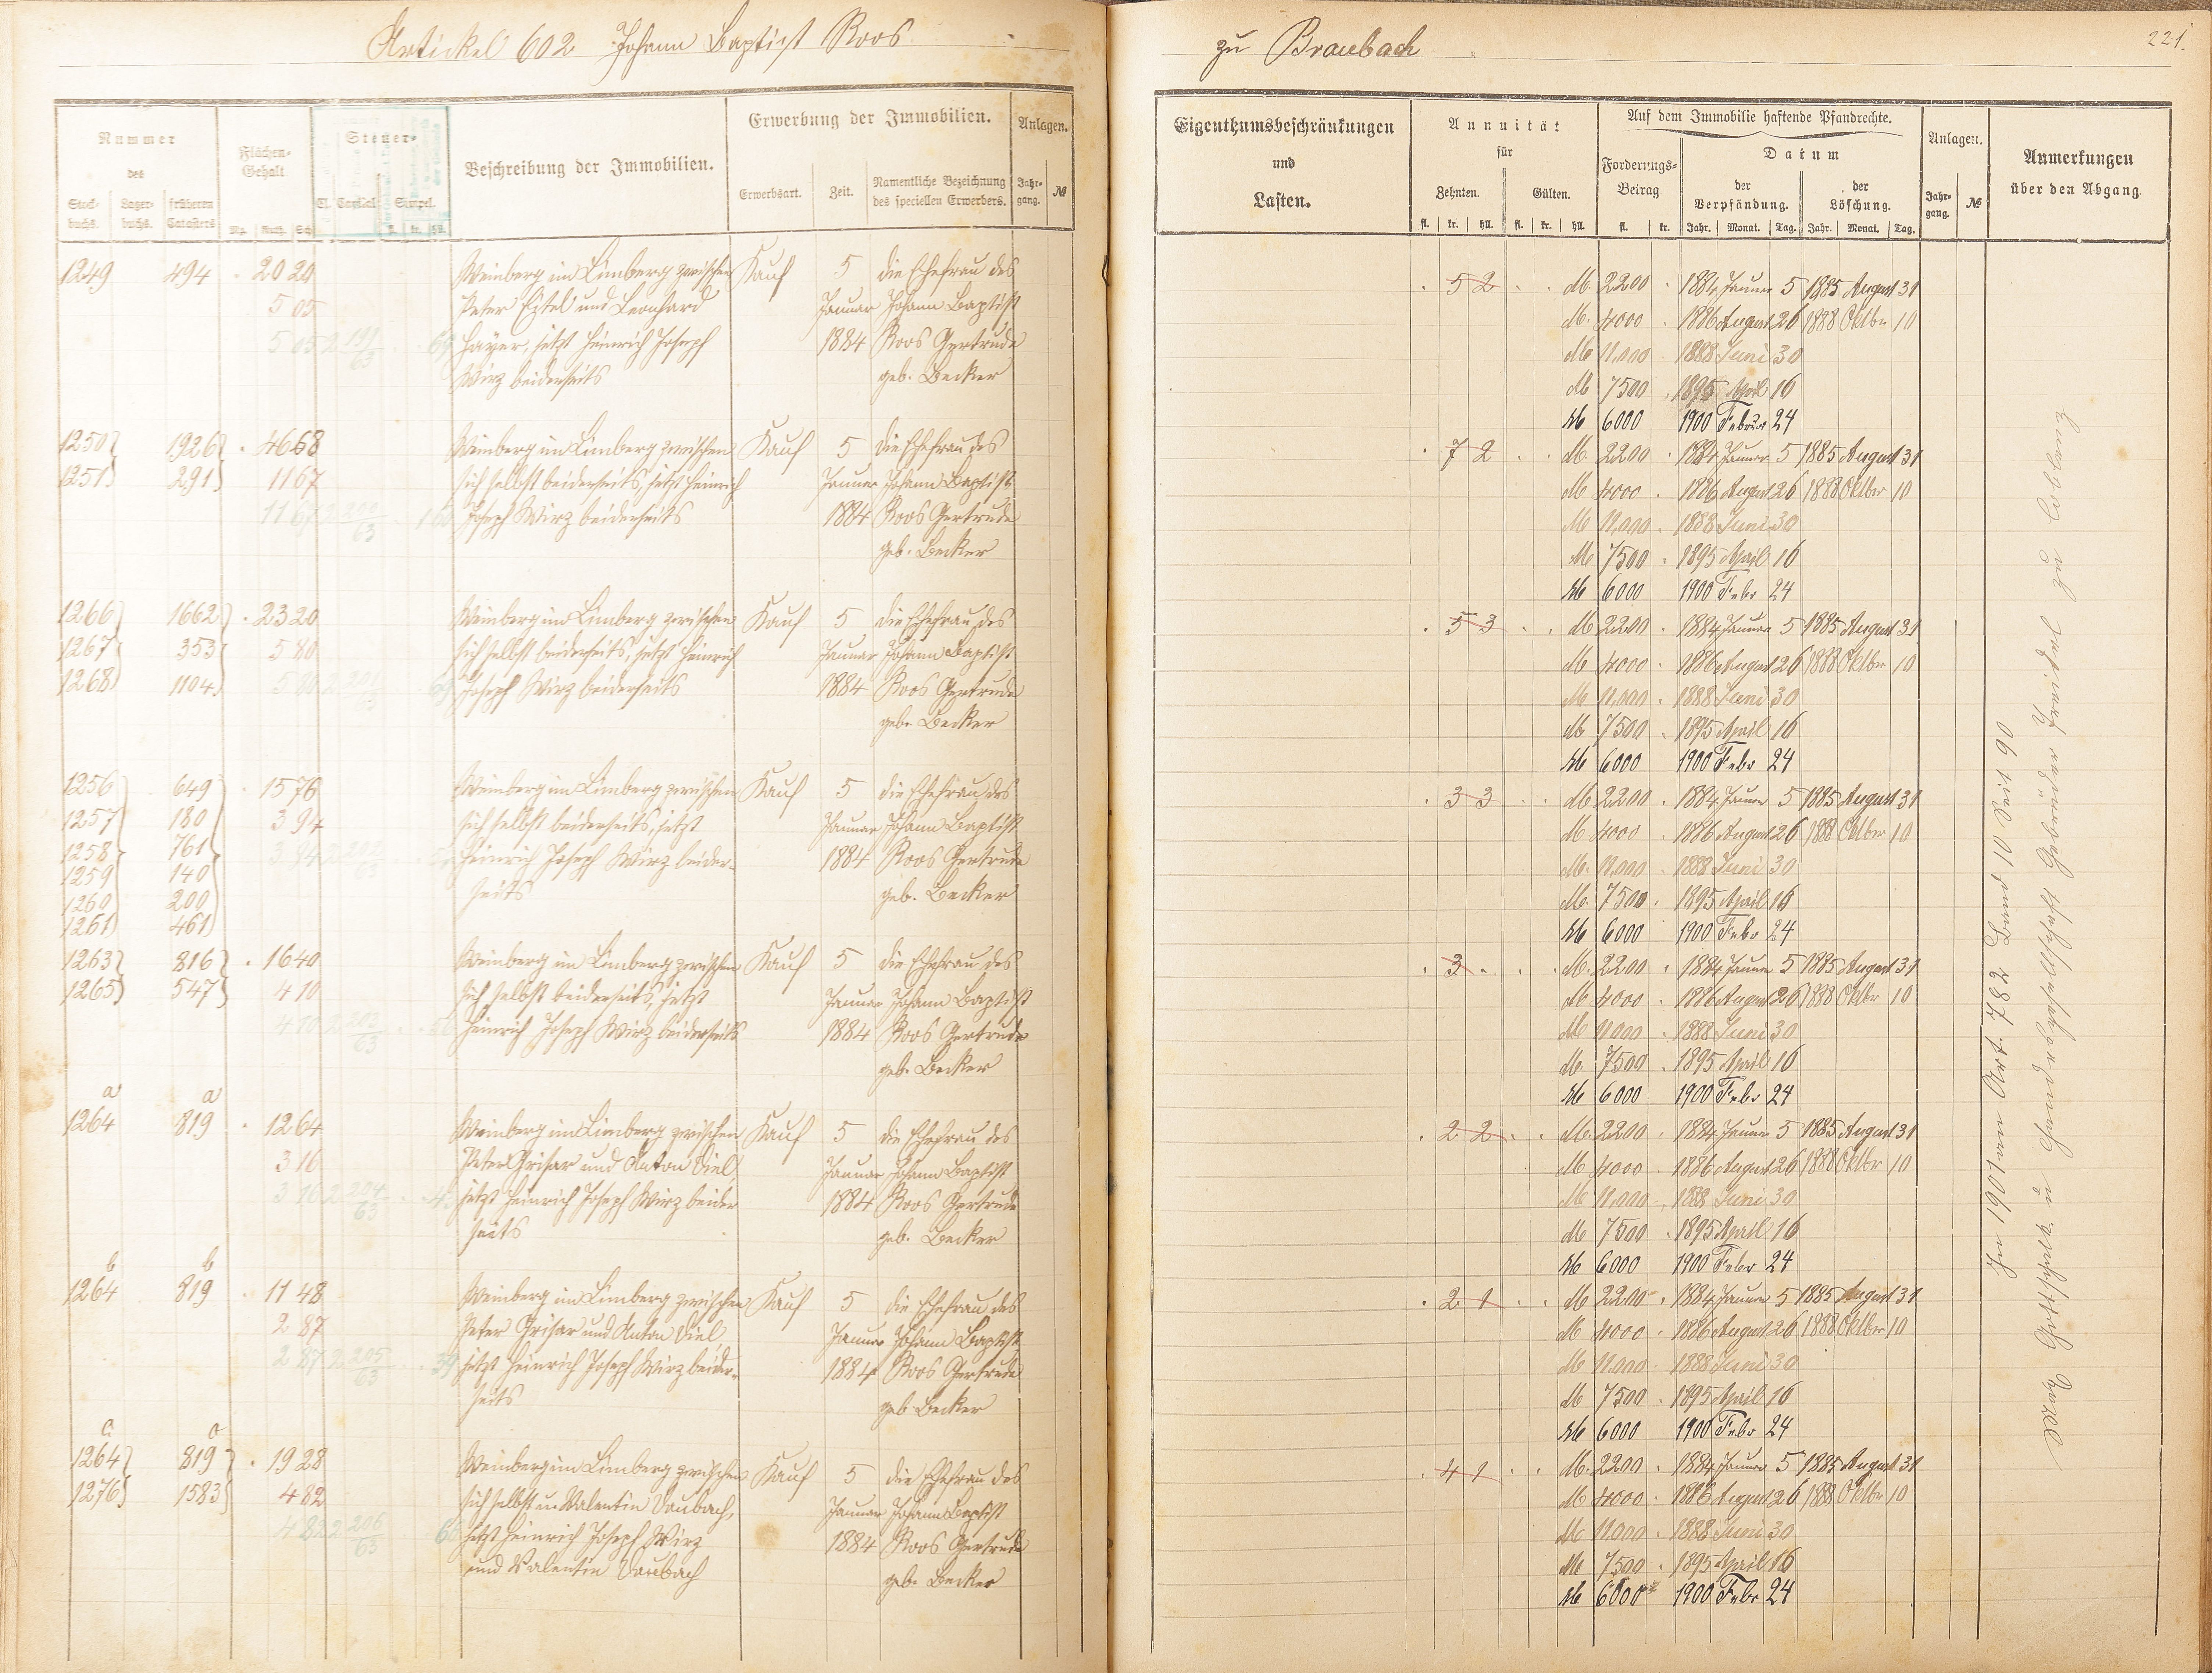 Artickel 602 Johann Baptist Roos
zu Braubach
221.
Nummer des
Stock-buchs. Lager-buchs. früheren Catasters
Flächen-Gehalt
Mg. Ruth. Sch.
Steuer-
Cl. Capital Simpel.
fl. kr. hll.
Beschreibung der Immobilien.
Erwerbung der Immobilien.
Erwerbsart. Zeit. Namentliche Bezeichnung des speciellen Erwerbers.
Anlagen.
Jahr-gang. №
Eigenthumsbeschränkungen und Lasten.
Annuität für
Zehnten. Gülten.
fl. kr. hll. fl. kr. hll.
Auf dem Immobilie haftende Pfandrechte.
Forderungs-Betrag
fl. kr.
Datum
der Verpfändung. der Löschung.
Jahr. Monat. Tag. Jahr. Monat. Tag.
Anlagen.
Jahr-gang. №
Anmerkungen über den Abgang
1249 494 20 20 Weinberg im Limberg zwischen Kauf 5 die Ehefrau des
5 05 Peter Eitel und Leonhard Januar Johann Baptist
5 05 2 199/63 Hayer, jetzt Heinrich Joseph 1884 Roos Gertrude
Wirz beiderseits geb. Becker
1250 1926 46 68 Weinberg im Limberg zwischen Kauf 5 die Ehefrau des
1251 291 11 67 sich selbst beiderseits, jetzt Heinrich Januar Johann Baptist
11 67 2 200/63 Joseph Wirz beiderseits 1884 Roos Gertrude
geb. Becker
1266 1662 23 20 Weinberg im Limberg zwischen Kauf 5 die Ehefrau des
1267 353 5 80 sich selbst beiderseits, jetzt Heinrich Januar Johann Baptist
1268 1104 5 80 Joseph Wirz beiderseits 1884 Roos Gertrude
geb. Becker
1256 649 15 76 Weinberg im Limberg zwischen Kauf 5 die Ehefrau des
1257 180 3 94 sich selbst beiderseits, jetzt Januar Johann Baptist
1258 761 3 94 Heinrich Joseph Wirz beider- 1884 Roos Gertrude
1259 140 seits geb. Becker
1260 200
1261 461
1263 816 16 40 Weinberg im Limberg zwischen Kauf 5 die Ehefrau des
1265 547 4 10 sich selbst beiderseits, jetzt Januar Johann Baptist
4 10 2 203/63 Heinrich Joseph Wirz beiderseits 1884 Roos Gertrude
geb. Becker
a a
1264 819 12 64 Weinberg im Limberg zwischen Kauf 5 die Ehefrau des
3 16 Peter Grisar und Anton Diel, Januar Johann Baptist
3 16 2 204/63 jetzt Heinrich Joseph Wirz beider 1884 Roos Gertrude
seits geb. Becker
b b
1264 819 11 48 Weinberg im Limberg zwischen Kauf 5 die Ehefrau des
2 87 Peter Grisar und Anton Diel Januar Johann Baptist
2 87 2 205/63 39 jetzt Heinrich Joseph Wirz beider- 1884 Roos Gertrude
seits geb. Becker
c c
1264 819 19 28 Weinberg im Limberg zwischen Kauf 5 die Ehefrau des
1276 1583 4 82 sich selbst u. Valentin Daubach, Januar Johann Baptist
4 82 2 206/63 66 jetzt Heinrich Joseph Wirz 1884 Roos Gertrude
und Valentin Daubach geb. Becker
5 2 M 2200 1884 Januar 5 1885 August 31
M. 4000 1886 August 26 1888 Oktbr 10
M 11,000 1888 Juni 30
M 7500 1895 April 16
M 6000 1900 Februar 24
7 2 M 2200 1884 Januar 5 1885 August 31
M 4000 1886 August 26 1888 Oktbr 10
M 11,000 1888 Juni 30
M 7500 1895 April 16
M 6000 1900 Febr 24
5 3 M 2200 1884 Januar 5 1885 August 31
M 4000 1886 August 26 1888 Oktbr 10
M 11,000 1888 Juni 30
M 7500 1895 April 16
M 6000 1900 Febr 24
3 3 M 2200 1884 Januar 5 1885 August 31
M 4000 1886 August 26 1888 Oktber 10
M. 11,000 1888 Juni 30
M. 7500 1895 April 16
M 6000 1900 Febr 24
3 M. 2200 1884 Januar 5 1885 August 31
M 4000 1886 August 26 1888 Oktbr 10
M 11000 1888 Juni 30
M. 7500 1895 April 16
M 6000 1900 Febr 24
2 2 M. 2200 1884 Januar 5 1885 August 31
M 4000 1886 August 26 1888 Oktbr 10
M 11,000 1888 Juni 30
M 7500 1895 April 16
M 6000 1900 Febr 24
2 1 M 2200 1884 Januar 5 1885 August 31
M 4000 1886 August 26 1888 Oktbr 10
M 11,000 1888 Juni 30
M 7500 1895 April 16
M 6000 1900 Febr 24
4 1 M. 2200 1884 Januar 5 1885 August 31
M 4000 1886 August 26 1888 Oktbr 10
M 11000 1888 Juni 30
M 7500 1895 April 16
M 6000 1900 Febr 24
Im 1901 an Art. 782 Band 10 Seit 90
Gottschalk u Handelsgesellschaft Gebrüder zu Coblenz